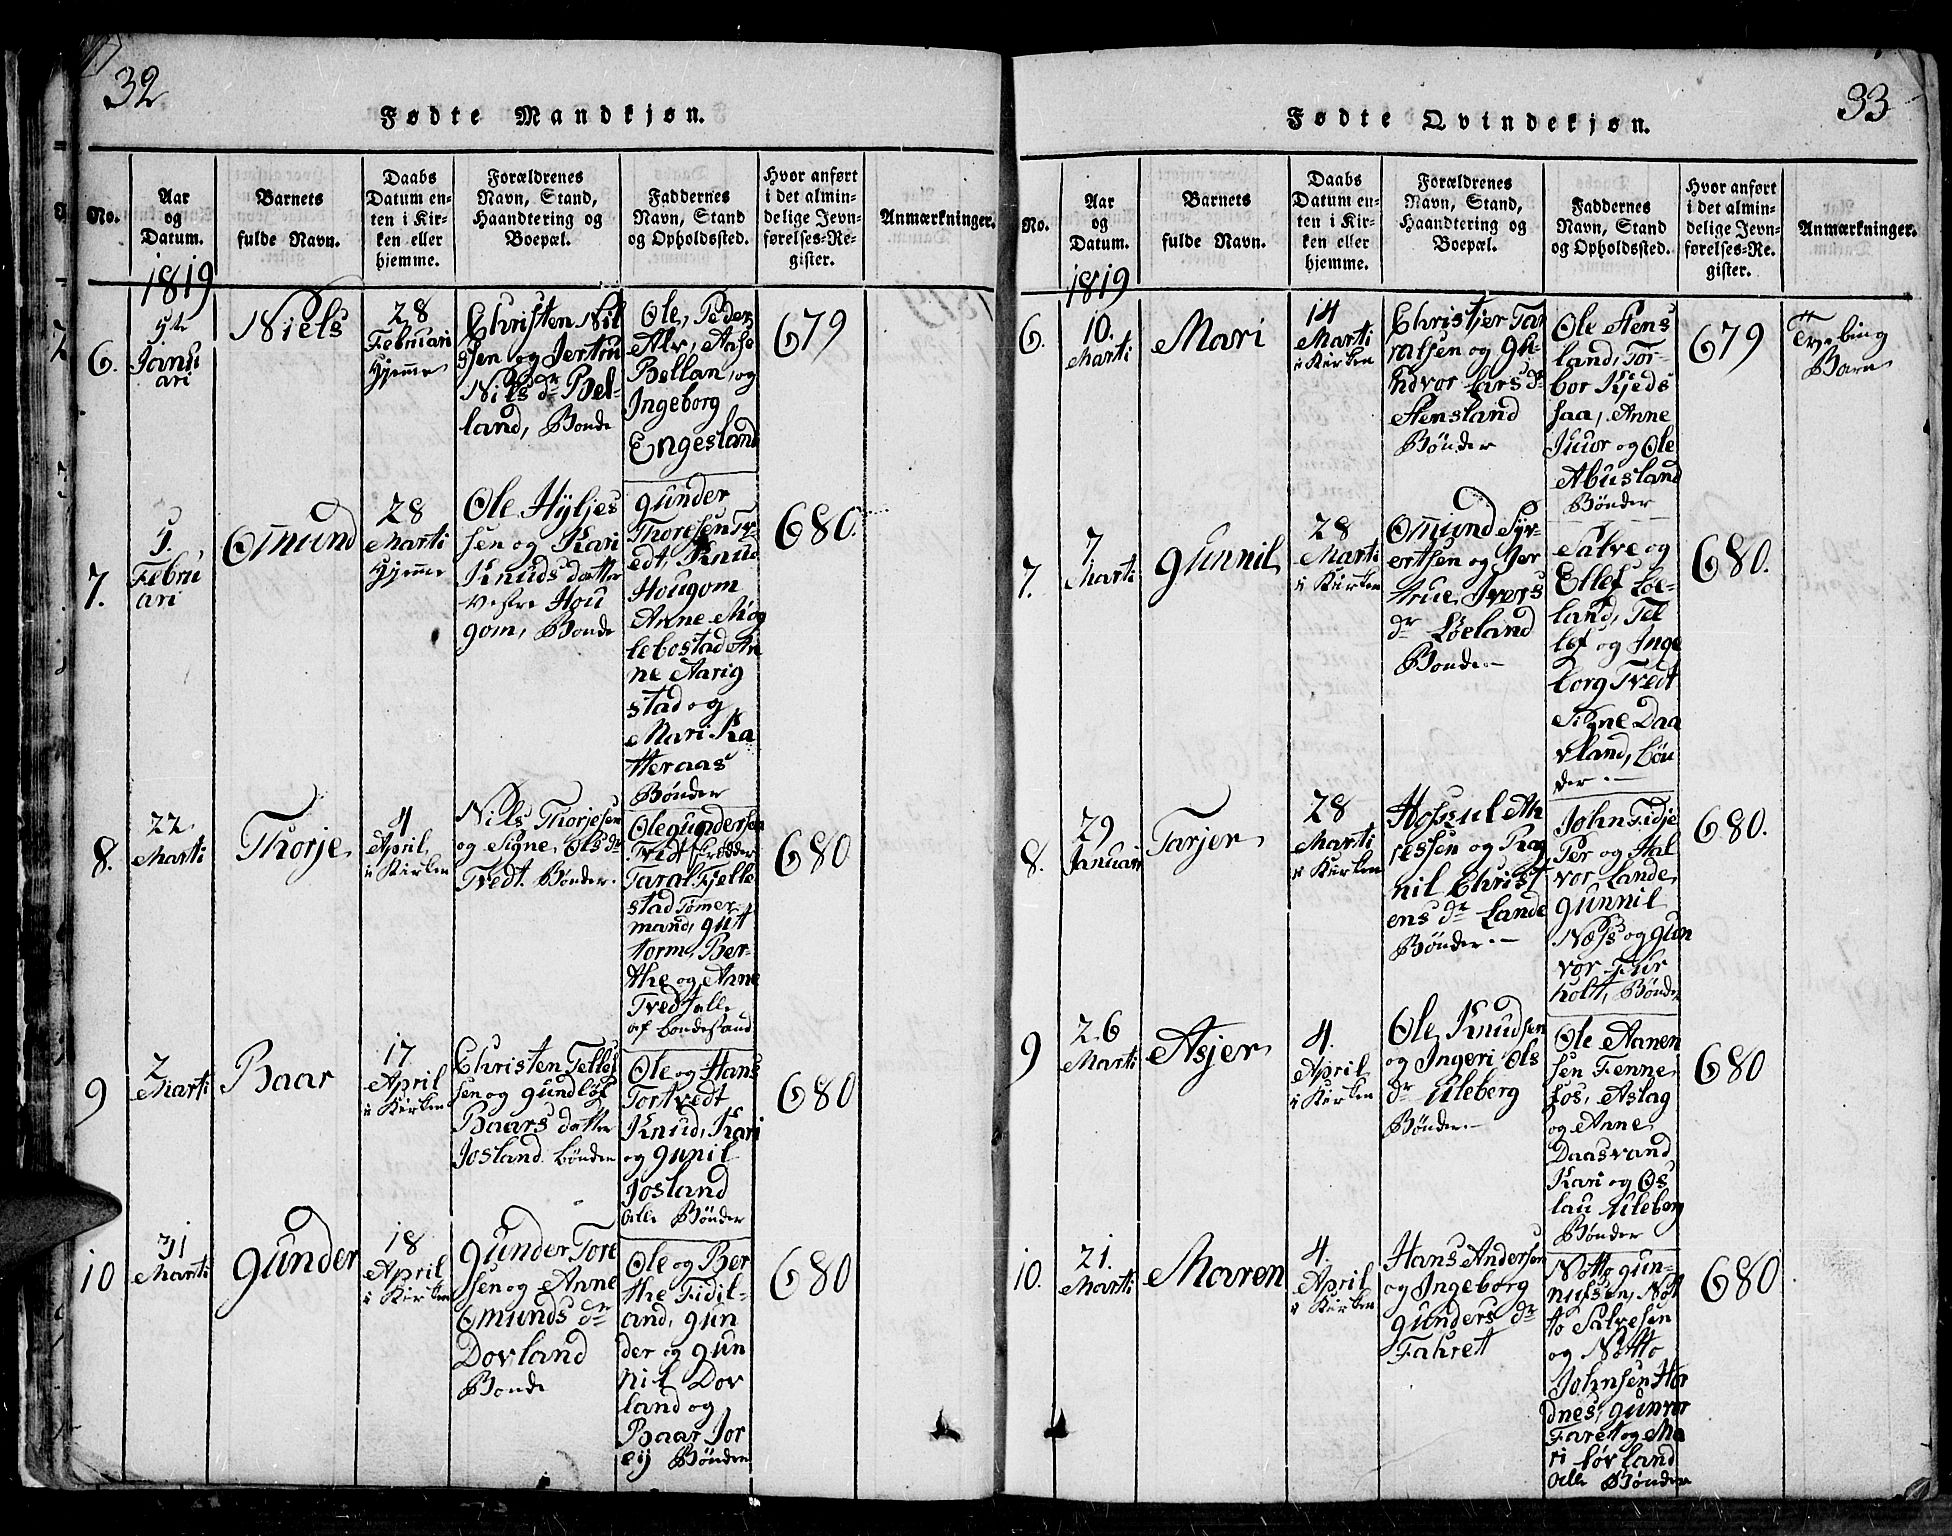 32
Fødte Mandkjøn.
No.
Aar
og
Datum.
Barnets
fulde Navn.
Daabs
Datum en-
ten i Kir-
ken eller
hjemme.
Forældrenes
Navn, Stand,
Haandtering og
Boepæl.
Faddernes
Navn, Stand
og Opholdssted.
Hvor anført
i det almin-
delige Jevn-
førelses-Re-
gister.
Anmærkninger.
1819
6.
Janu
ari
Niels
28
Februari
Hjemme
Christen Nil
sen og Jertru
Nils dr Bel-
land, Bonde
Ole, Peder
Alv, Aase
Bellan, og
Ingeborg
Engesland
679
7.
5.
Febru
ari
Omund
28
Marti
Hjeme
Ole Hyljes
sen og Kari
Knuds datter
vestre Hou
gom, Bonde
gunder
Thoresen Tv-
edt, Knud
Hougom
Anne Mog
lebostad An
ne Aarig
stad og
Mari Ka
tteraas
Bønder
680.
8.
22
Marti
Thorje
4
April
i Kirken
Nils Thorjesen
og Signe Ols dr
Tvedt. Bønder.
Ole gundersen
Tvedt
Taral Fjelle
stad Tømer
mand, gutt
torm, Ber-
the og Anne
Tvedt alle
af bondestand
680
9
2
Marti
Baar
17
April
i Kirken
Christen Tellef
sen og gundløf
Baars datter
Josland. bønder
Ole og Hans
Tortvedt
Knud, Kari
og gunil
Josland
alle Bønder
680
10
31
Marti
gunder
18
April
i Kirken
gunder Tore
sen og Anne
Omunds dr
Dovland
Bonde
Ole og Ber
the Fidil-
and, gun
der og gun
nil Dov
land og
Baar Jor
eij Bønder
680
33
Fødte Qvindekjøn.
No.
Aar
og
Datum.
Barnets
fulde Navn.
Daabs
Datum en-
ten i Kir-
ken eller
hjemme.
Forældrenes
Navn, Stand,
Haandtering og
Boepæl.
Faddernes
Navn, Stand
og Opholdssted.
Hvor anført
i det almin-
delige Jevn-
førelses-Re-
gister.
Anmærkninger.
1819
6.
10.
Marti
Mari
14
Marti
i Kirken
Christjer Tar
ralsen og gu-
nvor Lars dr
Stensland
Bønder
Ole Stens
land, Tor-
bor Kjeds
saa, Anne
Juur og Ole
Abusland
Bønder
679
Tvæling
Barn
7.
7
Marti
gunnil
28
Marti
i Kirken
Omund Syv-
ertsen og Jer
true Ivers
dr Løeland
Bonde.
Salve og
Ellef Løe-
land, Tel
lef og Inge
borg Tvedt
Signe Daa
vland, bøn
der.
680.
8.
29
Januari
Tarjer
28
Marti
i Kirken
Hoskul An
ressen og Rag
nil Christ
ens dr Lande
Bønder.
John Fidje
Per og Hal
vor Lande
gunnil
Næss og gun
vor Fur
holt, Bønder
680.
9
26
Marti
Asjer
4.
April
i Kirken
Ole Knudsen
og Ingeri Ols
dr Uleberg
Bønder.
Ole Aanen
sen Fenne
fos, Aslag
og Anne
Daasvand
Kari og Os
lau Uleberg
Bønder
680
10.
21.
Marti
Maren
4.
April
i Kirken
Hans Andersen
og Ingeborg
gunders dr
Fahret
Notto gun-
nufsen, Not
to Salvesen
og Notto
Johnsen Hor
dnes, gunvor
Faret og Ma
ri løvland
alle Bønder
680